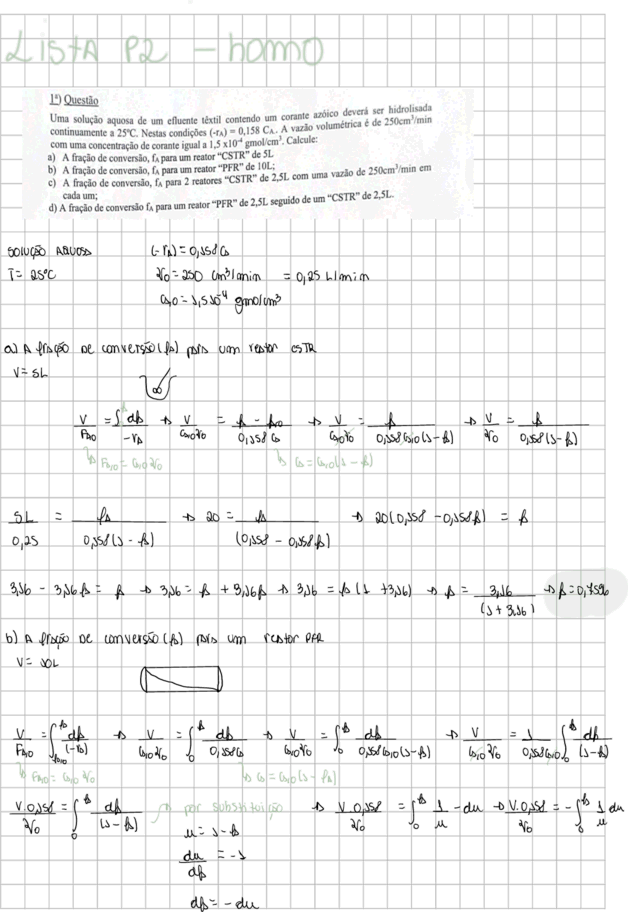 LISTA P2 - homo
1ª) Questão
Uma solução aquosa de um efluente têxtil contendo um corante azóico deverá ser hidrolisada
continuamente a 25ºC. Nestas condições (-rA) = 0,158 CA. A vazão volumétrica é de 250cm³/min
com uma concentração de corante igual a 1,5 x10⁻⁴ gmol/cm³. Calcule:
a) A fração de conversão, fA para um reator "CSTR" de 5L
b) A fração de conversão, fA para um reator "PFR" de 10L;
c) A fração de conversão, fA para 2 reatores "CSTR" de 2,5L com uma vazão de 250cm³/min em
cada um;
d) A fração de conversão fA para um reator "PFR" de 2,5L seguido de um "CSTR" de 2,5L.
SOLUÇÃO AQUOSA (-rA) = 0,158 CA
T = 25ºC V0 = 250 cm³/min = 0,25 L/min
CA,0 = 1,5 10⁻⁴ gmol/cm³
a) A fração de conversão (fA) para um reator CSTR
V = 5L
V/FA,0 = ∫ dfA/-rA → V/CA,0V0 = fA - fA0/0,158 CA → V/CA,0V0 = fA/0,158 CA,0(1 - fA) → V/V0 = fA/0,158(1 - fA)
↳ FA,0 = CA,0 V0 ↳ CA = CA,0(1 - fA)
5L/0,25 = fA/0,158(1 - fA) → 20 = fA/(0,158 - 0,158fA) → 20(0,158 - 0,158fA) = fA
3,16 - 3,16fA = fA → 3,16 = fA + 3,16fA → 3,16 = fA(1 + 3,16) → fA = 3,16/(1 + 3,16) → fA = 0,7596
b) A fração de conversão (fA) para um reator PFR
V = 10L
V/FA,0 = ∫fA0^fA dfA/(-rA) → V/CA,0V0 = ∫0^fA dfA/0,158CA → V/CA,0V0 = ∫0^fA dfA/0,158CA,0(1 - fA) → V/CA,0V0 = 1/0,158CA,0 ∫0^fA dfA/(1 - fA)
↳ FA,0 = CA,0 V0 ↳ CA = CA,0(1 - fA)
V.0,158/V0 = ∫0^fA dfA/(1 - fA) → por substituição → V.0,158/V0 = ∫0^fA 1/u -du → V.0,158/V0 = -∫0^fA 1/u du
u = 1 - fA
du/dfA = -1
dfA = -du